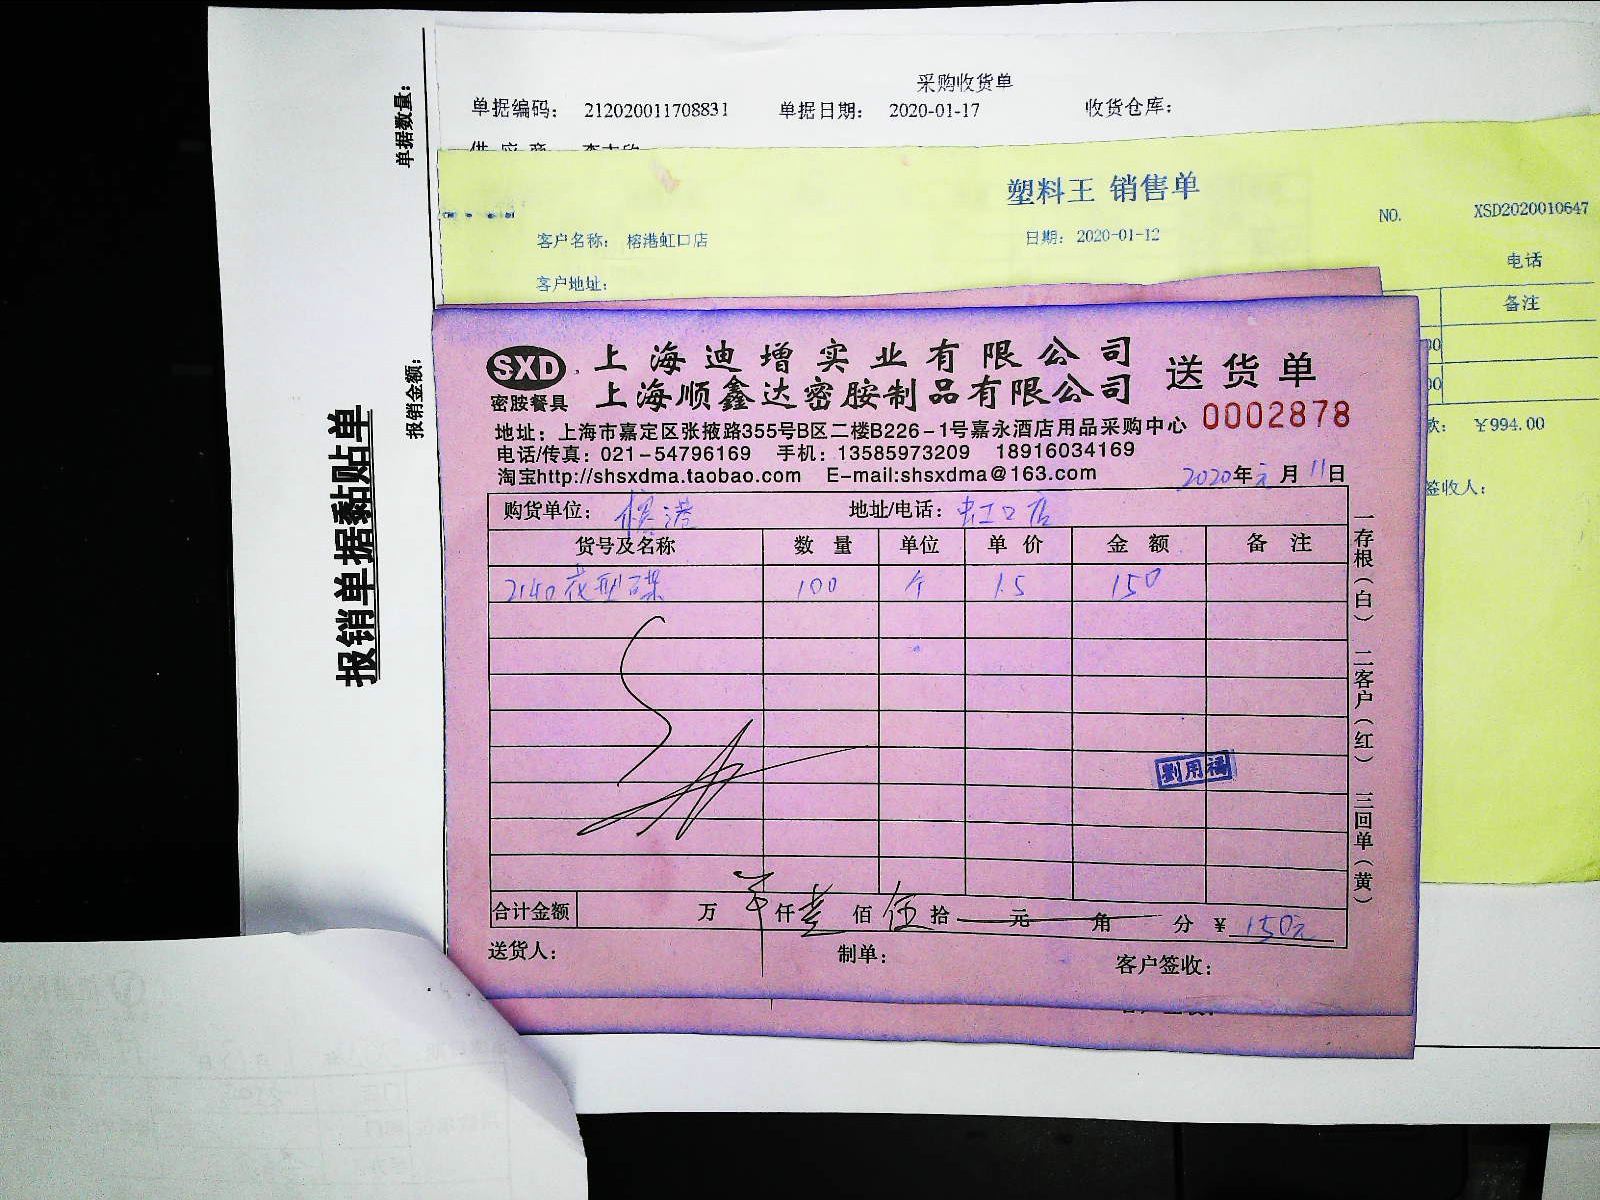 采购收货单
单据编码: 212020011708831 单据日期: 2020-01-17 收货仓库:
供应商
塑料王 销售单
NO. XSD2020010647
客户名称: 榕港虹口店 日期: 2020-01-12
电话
客户地址:
备注
00
00
款: ¥994.00
签收人:
单据数量:
报销金额:
报销单据黏贴单
SXD 上海迪增实业有限公司
密胺餐具 上海顺鑫达密胺制品有限公司 送货单
0002878
地址: 上海市嘉定区张掖路355号B区二楼B226-1号嘉永酒店用品采购中心
电话/传真: 021-54796169 手机: 13585973209 18916034169
淘宝http://shsxdma.taobao.com E-mail:shsxdma@163.com
2020年元月11日
购货单位: 榕港 地址/电话: 虹口店
货号及名称 数量 单位 单价 金额 备注
2140花型碟 100 个 1.5 150
劉用福
合计金额 万 仟壹佰伍拾 元 角 分 ¥150元
送货人: 制单: 客户签收:
一存根(白) 二客户(红) 三回单(黄)